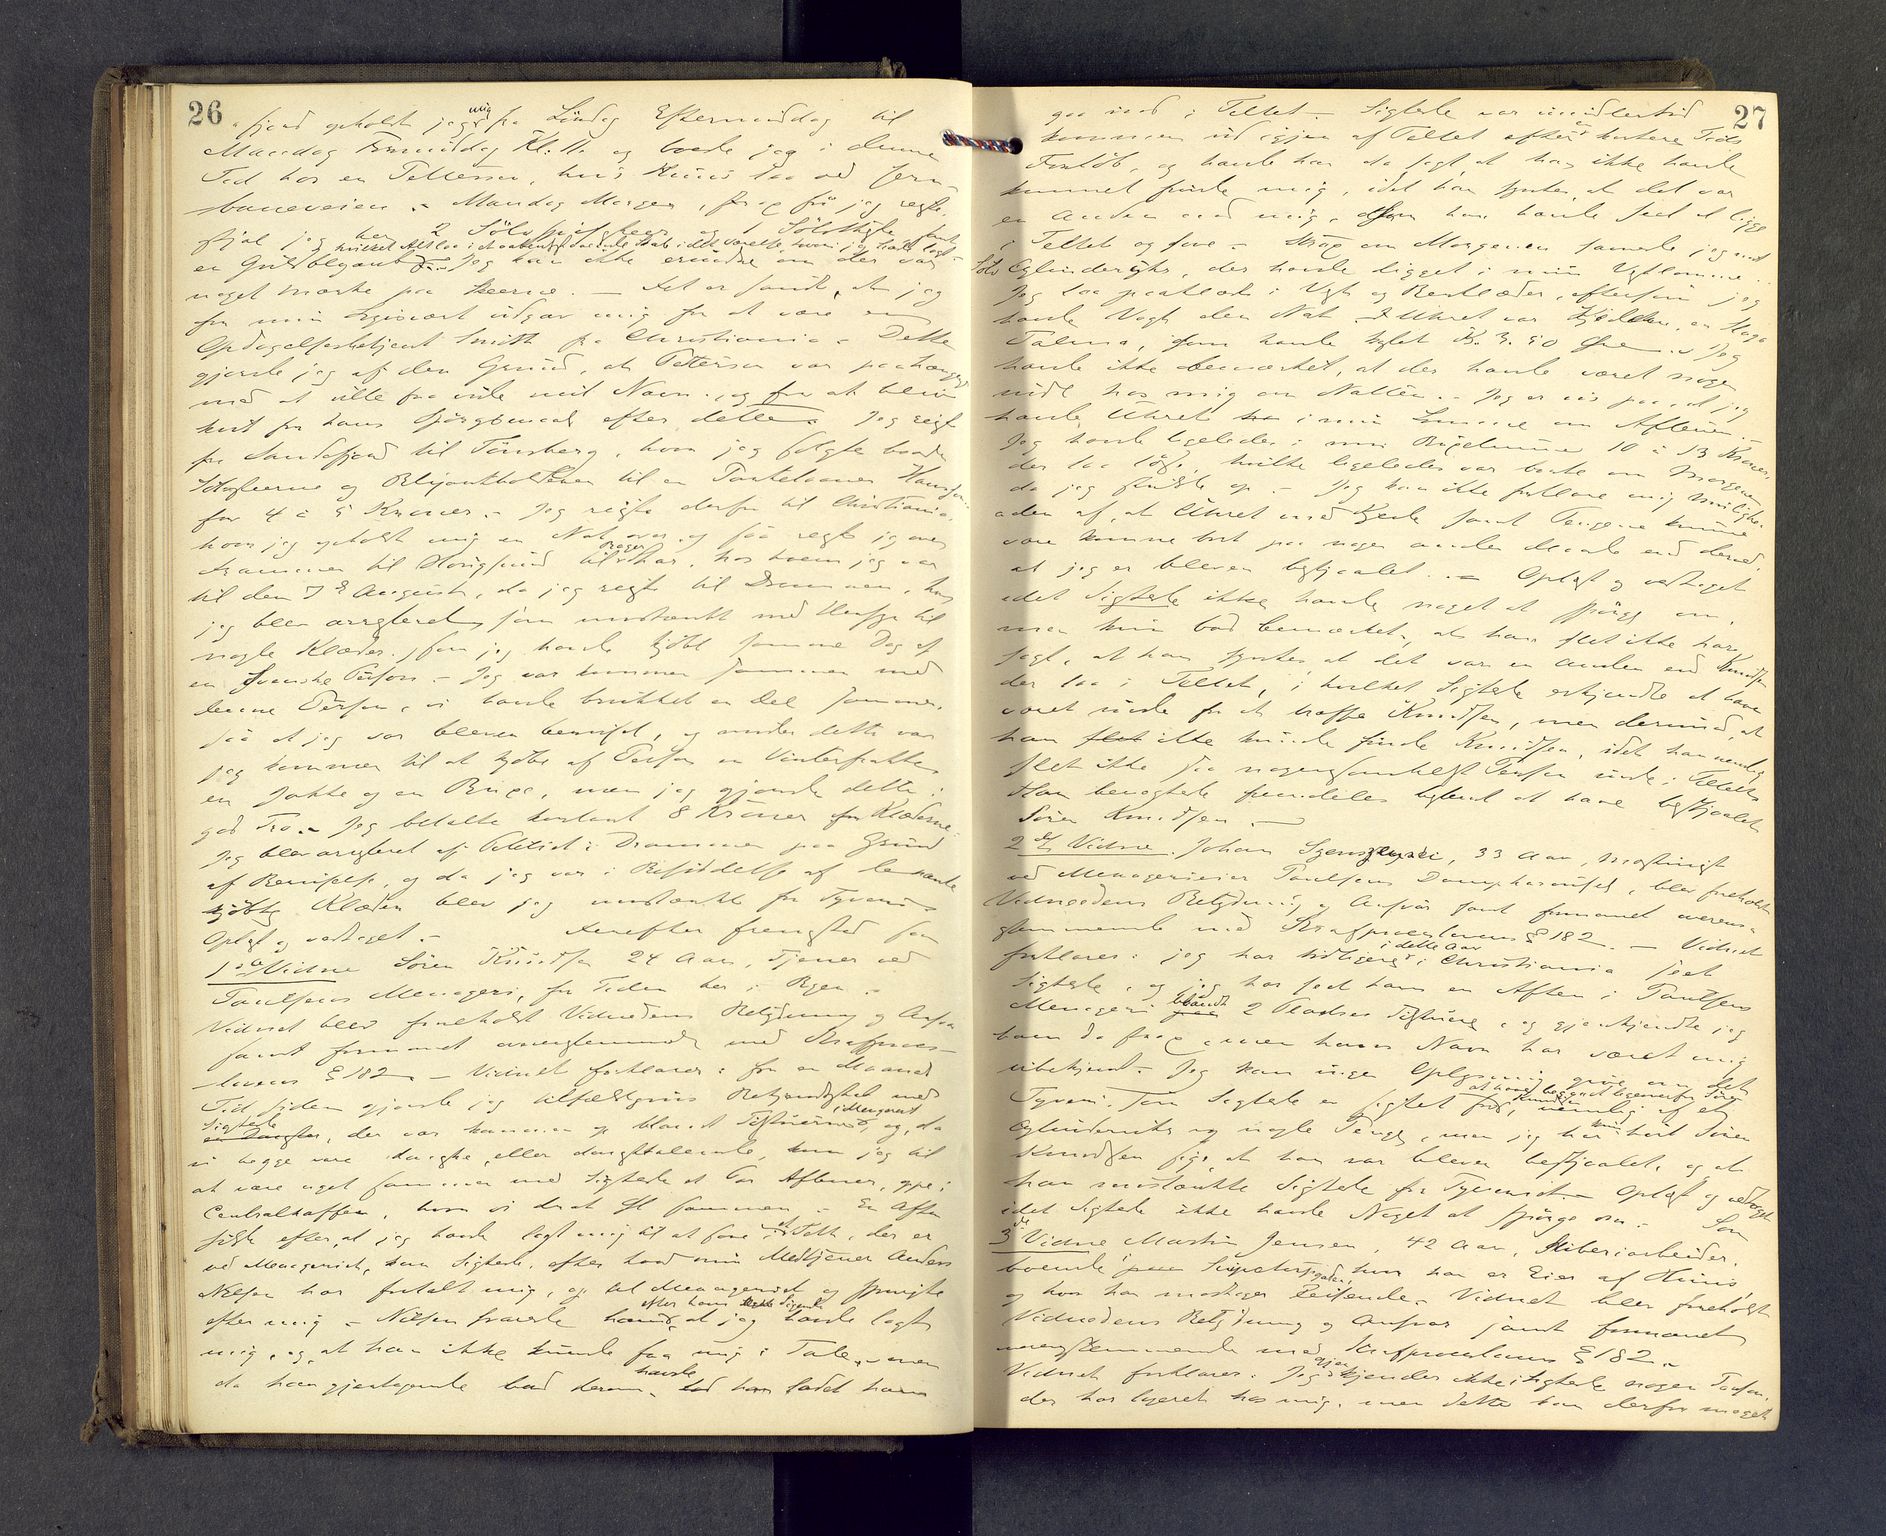 26
fjord opholdt jeg mig fra Søndag Eftermiddag til
Mandag Formiddag Kl. 11 og boede jeg i denne
Tid hos en Pettersen, hvis Huus laa ved Jern-
baneveien. - Mandag Morgen, strax før jeg reiste,
stjal jeg her 2 Sølvspiseskeer og 1 Sølv
hvilket Alt laa i
en Guldblyant Jeg kan ikke erindre om der var
noget Mærke paa Skeerne. - Det er sandt, at jeg
for min Logivært udgav mig for at være en
Opdagelsesbetjent Smith fra Christiania - Dette
gjorde jeg af den Grund, at Pettersen var paahængende
med at ville faa vide mit Navn, og for at blive
kvit for hans Spørgsmaal efter dette. Jeg reiste
fra Sandefjord til Tønsberg, hvor jeg solgte baade
Sølvskeerne og Blyantholderen til en Pantelaaner Hansen
for 4 à 5 Kroner. - Jeg reiste derfra til Christiania,
hvor jeg opholdt mig en Nat over og saa reiste jeg over
Drammen til Hougsund til hos hvem jeg var
til den 7de August, da jeg reiste til Drammen, hvor
jeg blev arresteret som mistænkt med Hensyn til
nogle Klæder, som jeg havde kjøbt samme Dag af
en svenske Person - Jeg var kommen sammen med
denne Person, vi havde drukket en Del sammen,
saa at jeg var bleven beruset, og under dette var
jeg kommen til at kjøbe af Person en Vinterfrakke,
en Jakke og en Buxe, men jeg gjorde dette i
god Tro. - Jeg betalte kontant 8 Kroner for Klæderne.
Jeg blev arresteret af Politiet i Drammen paa Grund
af Beruselse, og da jeg var i Besiddelse af de nævnte
kjøbte Klæder blev jeg mistænkt for Tyveri
Oplæst og vedtaget. - Derefter fremstod som
1ste Vidne Søren Knudsen 24 Aar, Tjener ved
Paulsens Menageri, for Tiden her i Byen. -
Vidnet blev foreholdt Vidneedens Betydning og Ansvar
samt formanet overensstemmende med Straffproces-
lovens § 182. - Vidnet forklarer: for en Maaned
Tid siden gjorde jeg tilfældigvis Bekjendtskab med
Sigtede der var kommen op blandt Tilskuerne i Menageriet, og, da
vi begge vare danske, eller dansktalende, kom jeg til
at være noget sammen med Sigtede et Par Aftener, oppe i
Centralkaffeen, hvor vi drak Øl sammen. - En Aften
silde efter at jeg havde lagt mig til at sove i et Telt, der er
ved Menageriet, kom Sigtede, efter hvad min Medtjener Anders
Nielsen har fortalt mig, op til Menageriet og spurgte
efter mig - Nielsen svarede efter hans Sigende at jeg havde lagt
mig, og at han ikke kunde faa mig i Tale, men
da han gjentagende bad derom, havde han ladt ham
27
gaa ind i Teltet. - Sigtede var imidlertid
kommen ud igjen af Teltet efter en kortere Tids
Forløb, og havde han da sagt, at han ikke havde
kunnet finde mig, idet han syntes, at det var
en Anden end mig, som han havde seet at ligge
i Teltet og sove. - Strax om Morgenen savnede jeg mit
Sølv Cylinderuhr, der havde ligget i min Vestlomme.
Jeg laa paaklædt i Vest og Benklæder, eftersom jeg
havde Vagt den Nat. - I Uhret var Kjeden, en
Talmi, som havde kostet Kr. 3.50 Øre. - Jeg
havde ikke bemærket, at der havde været nogen
inde hos mig om Natten. - Jeg er vis paa, at jeg
havde Uhret i min Lomme om Aftenen. -
Jeg havde ligeledes i min Buxelomme 10 à 13 Kroner,
der laa løst, hvilke ligeledes var borte om Morgenen
da jeg stod op. - Jeg kan ikke forklare mig Mulighe-
aden af, at Uhret med Kjede samt Pengene kunne
være komne bort paa nogen anden Maade end derved,
at jeg er bleven bestjaalet. - Oplæst og vedtaget
idet Sigtede ikke havde noget at spørge om,
men kun bad bemærket, at han slet ikke har
sagt, at han syntes at det var en anden end Knudsen
der laa i Teltet, i hvilket Sigtede erkjendte at have
været inde for at træffe Knudsen, men derimod, at
han slet ikke kunde finde Knudsen, idet han nemlig
slet ikke saa nogensomhelst Person inde i Teltet
Han benegtede fremdeles bestemt at have bestjaalet
Søren Knudsen. -
2det Vidne. Johan 33 Aar, Maskinist
ved Menagerieier Paulsens Dampkarousel, blev foreholdt
Vidneedens Betydning og Ansvar samt formanet overens-
stemmende med Straffproceslovens § 182. - Vidnet
forklarer: jeg har tidligere i dette Aar i Christiania seet
Sigtede, og jeg har seet ham en Aften i Paulsens
Menageri blandt 2 Plads Tilskuere, og gjenkjendte jeg
ham da strax, men hans Navn har været mig
ubekjendt. - Jeg kan ingen Oplysning give om det
Tyveri, som Sigtede er sigtet for, nemlig af et
Cylinderuhr og nogle Penge, men jeg har kun hørt Søren
Knudsen sige, at han var bleven bestjaalet, og at
han mistænkte Sigtede for Tyveriet. - Oplæst og vedtaget
idet Sigtede ikke havde Noget at spørge om. - Som
3de Vidne Martin Jensen, 42 Aar, Sliberiarbeider,
boende paa hvor han er Eier af Huus,
og hvor han modtager Reisende. - Vidnet blev foreholdt
Vidneedens Betydning og Ansvar samt formanet
overensstemmende med Straffproceslovens § 182. -
Vidnet forklarer: Jeg gjenkjender ikke i Sigtede nogen Person,
der har logeret hos mig, men dette kan derfor meget